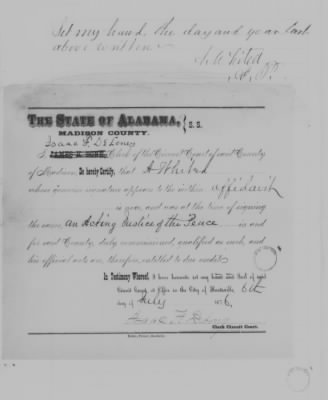 Set my hand the day and year last
above written
THE STATE OF ALABAMA, } S. S.
MADISON COUNTY.
Isaac F.
I, Clerk of the Circuit Court of said County
of Madison, Do hereby Certify, that A Whited
whose genuine signature appears to the within affidavit
is now, and was at the time of signing
the same, an Acting Justice of the Peace in and
for said County, duly commissioned, qualified as such, and
his official acts are, therefore, entitled to due credit.
In Testimony Whereof, I have hereunto set my hand and Seal of said
Circuit Court, at Office in the City of Huntsville, 6th
day of July 1876,
Isaac F.
Clerk Circuit Court.